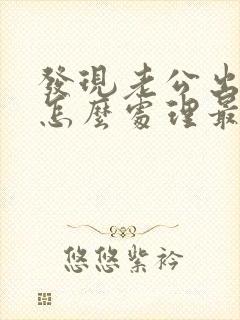 發現老公出
怎麼處理最
悠悠紫衿